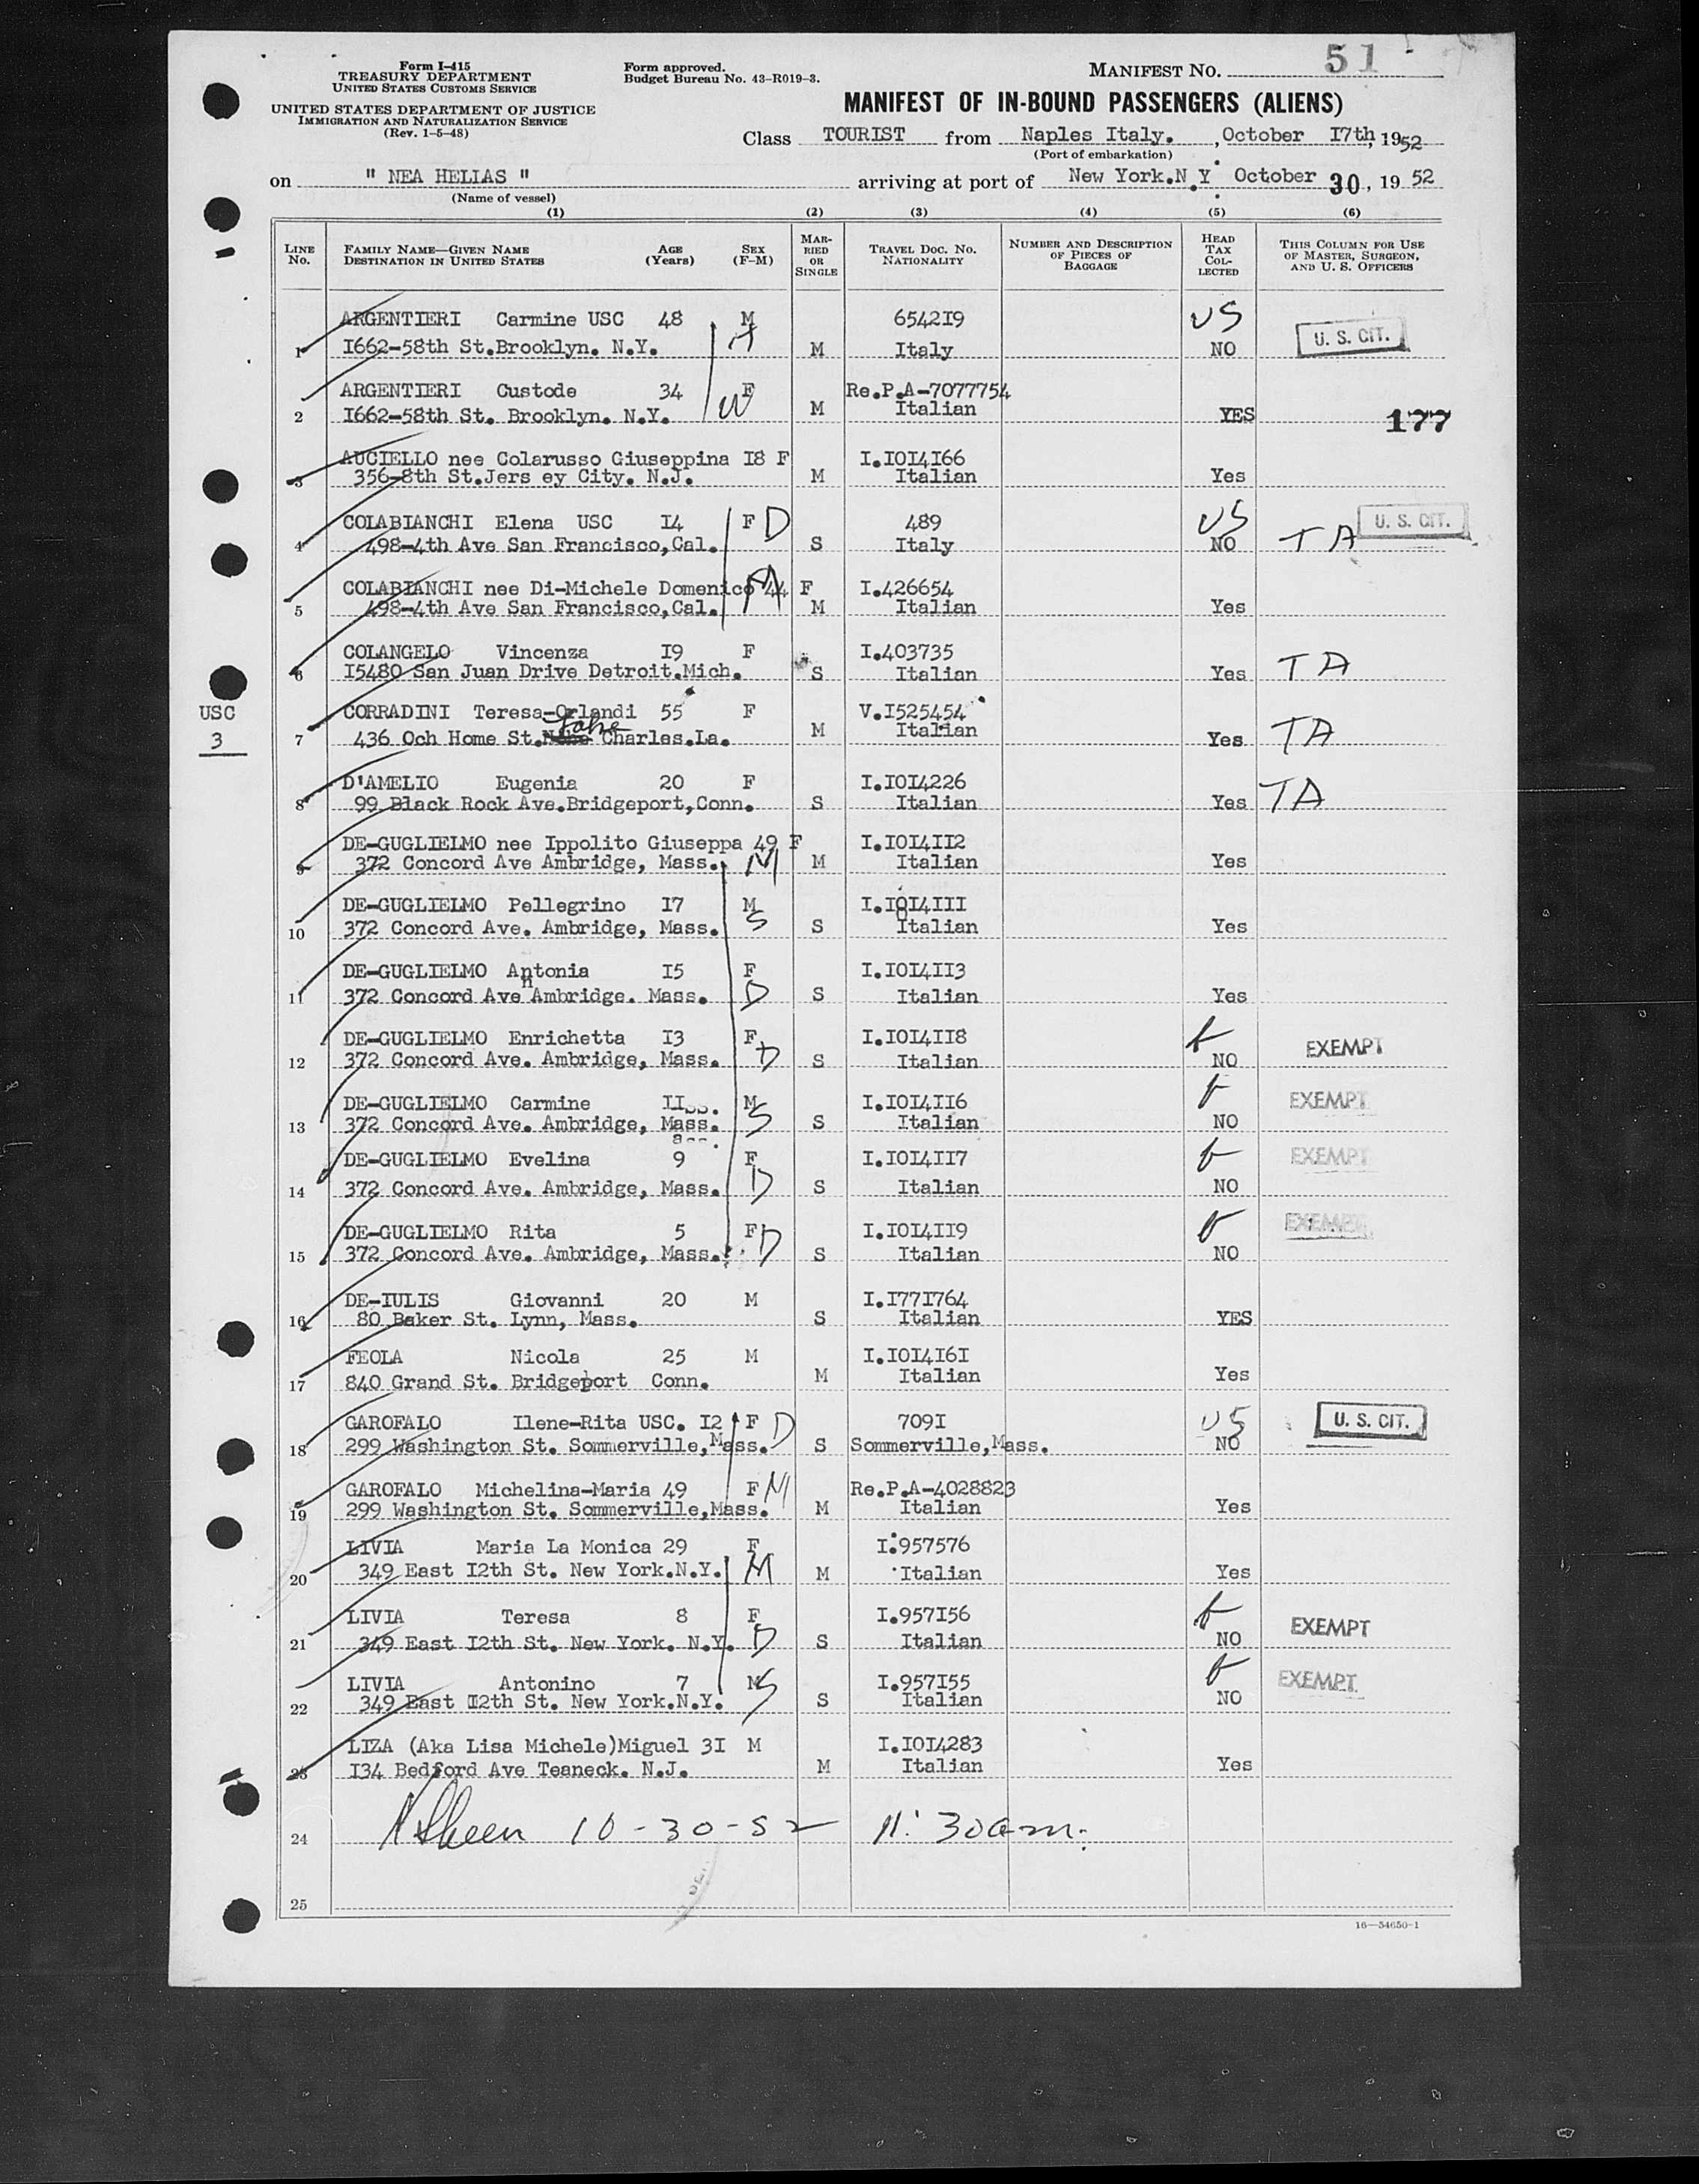 Form I-415
TREASURY DEPARTMENT
UNITED STATES CUSTOMS SERVICE
UNITED STATES DEPARTMENT OF JUSTICE
IMMIGRATION AND NATURALIZATION SERVICE
(Rev. 1-5-48)
Form approved.
Budget Bureau No. 43-R019-3.
MANIFEST NO. 51
MANIFEST OF IN-BOUND PASSENGERS (ALIENS)
Class TOURIST from Naples Italy. , October I7th, 1952
(Port of embarkation)
on " NEA HELIAS " arriving at port of New York.N.Y. October 30, 19 52
(Name of vessel)
(1) (2) (3) (4) (5) (6)
LINE No. FAMILY NAME—GIVEN NAME DESTINATION IN UNITED STATES AGE (Years) SEX (F-M) MARRIED OR SINGLE TRAVEL DOC. NO. NATIONALITY NUMBER AND DESCRIPTION OF PIECES OF BAGGAGE HEAD TAX COLLECTED THIS COLUMN FOR USE OF MASTER, SURGEON, AND U. S. OFFICERS
ARGENTIERI Carmine USC 48 M 6542I9 US
1 I662-58th St.Brooklyn. N.Y. H M Italy NO U. S. CIT.
ARGENTIERI Custode 34 F Re.P.A-7077754
2 I662-58th St. Brooklyn. N.Y. W M Italian YES 177
AUCIELLO nee Colarusso Giuseppina I8 F I.IOI4I66
3 356-8th St.Jers ey City. N.J. M Italian Yes
COLABIANCHI Elena USC I4 F D 489 US U. S. CIT.
4 498-4th Ave San Francisco,Cal. S Italy NO TA
COLABIANCHI nee Di-Michele Domenico 44 F I.426654
5 498-4th Ave San Francisco,Cal. M M Italian Yes
COLANGELO Vincenza I9 F I.403735
6 I5480 San Juan Drive Detroit.Mich. S Italian Yes TA
CORRADINI Teresa-Orlandi 55 F V.I525454
7 436 Och Home St. Lake Charles.La. M Italian Yes TA
D'AMELIO Eugenia 20 F I.IOI4226
8 99 Black Rock Ave.Bridgeport,Conn. S Italian Yes TA
DE-GUGLIELMO nee Ippolito Giuseppa 49 F I.IOI4II2
9 372 Concord Ave Ambridge, Mass. M M Italian Yes
DE-GUGLIELMO Pellegrino I7 M I.IOI4III
10 372 Concord Ave. Ambridge, Mass. S S Italian Yes
DE-GUGLIELMO Antonia I5 F I.IOI4II3
11 372 Concord Ave Ambridge. Mass. D S Italian Yes
DE-GUGLIELMO Enrichetta I3 F I.IOI4II8
12 372 Concord Ave. Ambridge, Mass. D S Italian NO EXEMPT
DE-GUGLIELMO Carmine II M I.IOI4II6
13 372 Concord Ave. Ambridge, Mass. S S Italian NO EXEMPT
DE-GUGLIELMO Evelina 9 F I.IOI4II7
14 372 Concord Ave. Ambridge, Mass. D S Italian NO EXEMPT
DE-GUGLIELMO Rita 5 F I.IOI4II9
15 372 Concord Ave. Ambridge, Mass. D S Italian NO EXEMPT
DE-IULIS Giovanni 20 M I.I77I764
16 80 Baker St. Lynn, Mass. S Italian YES
FEOLA Nicola 25 M I.IOI4I6I
17 840 Grand St. Bridgeport Conn. M Italian Yes
GAROFALO Ilene-Rita USC. I2 F D 709I US
18 299 Washington St. Sommerville,Mass. S Sommerville,Mass. NO U. S. CIT.
GAROFALO Michelina-Maria 49 F M Re.P.A-4028823
19 299 Washington St. Sommerville,Mass. M Italian Yes
LIVIA Maria La Monica 29 F I.957576
20 349 East I2th St. New York.N.Y. M M Italian Yes
LIVIA Teresa 8 F I.957I56
21 349 East I2th St. New York. N.Y. D S Italian NO EXEMPT
LIVIA Antonino 7 M I.957I55
22 349 East I2th St. New York.N.Y. S S Italian NO EXEMPT
LIZA (Aka Lisa Michele)Miguel 3I M I.IOI4283
23 I34 Bedford Ave Teaneck. N.J. M Italian Yes
24 10-30-52 11:30am.
25
USC
3
16—54650-1